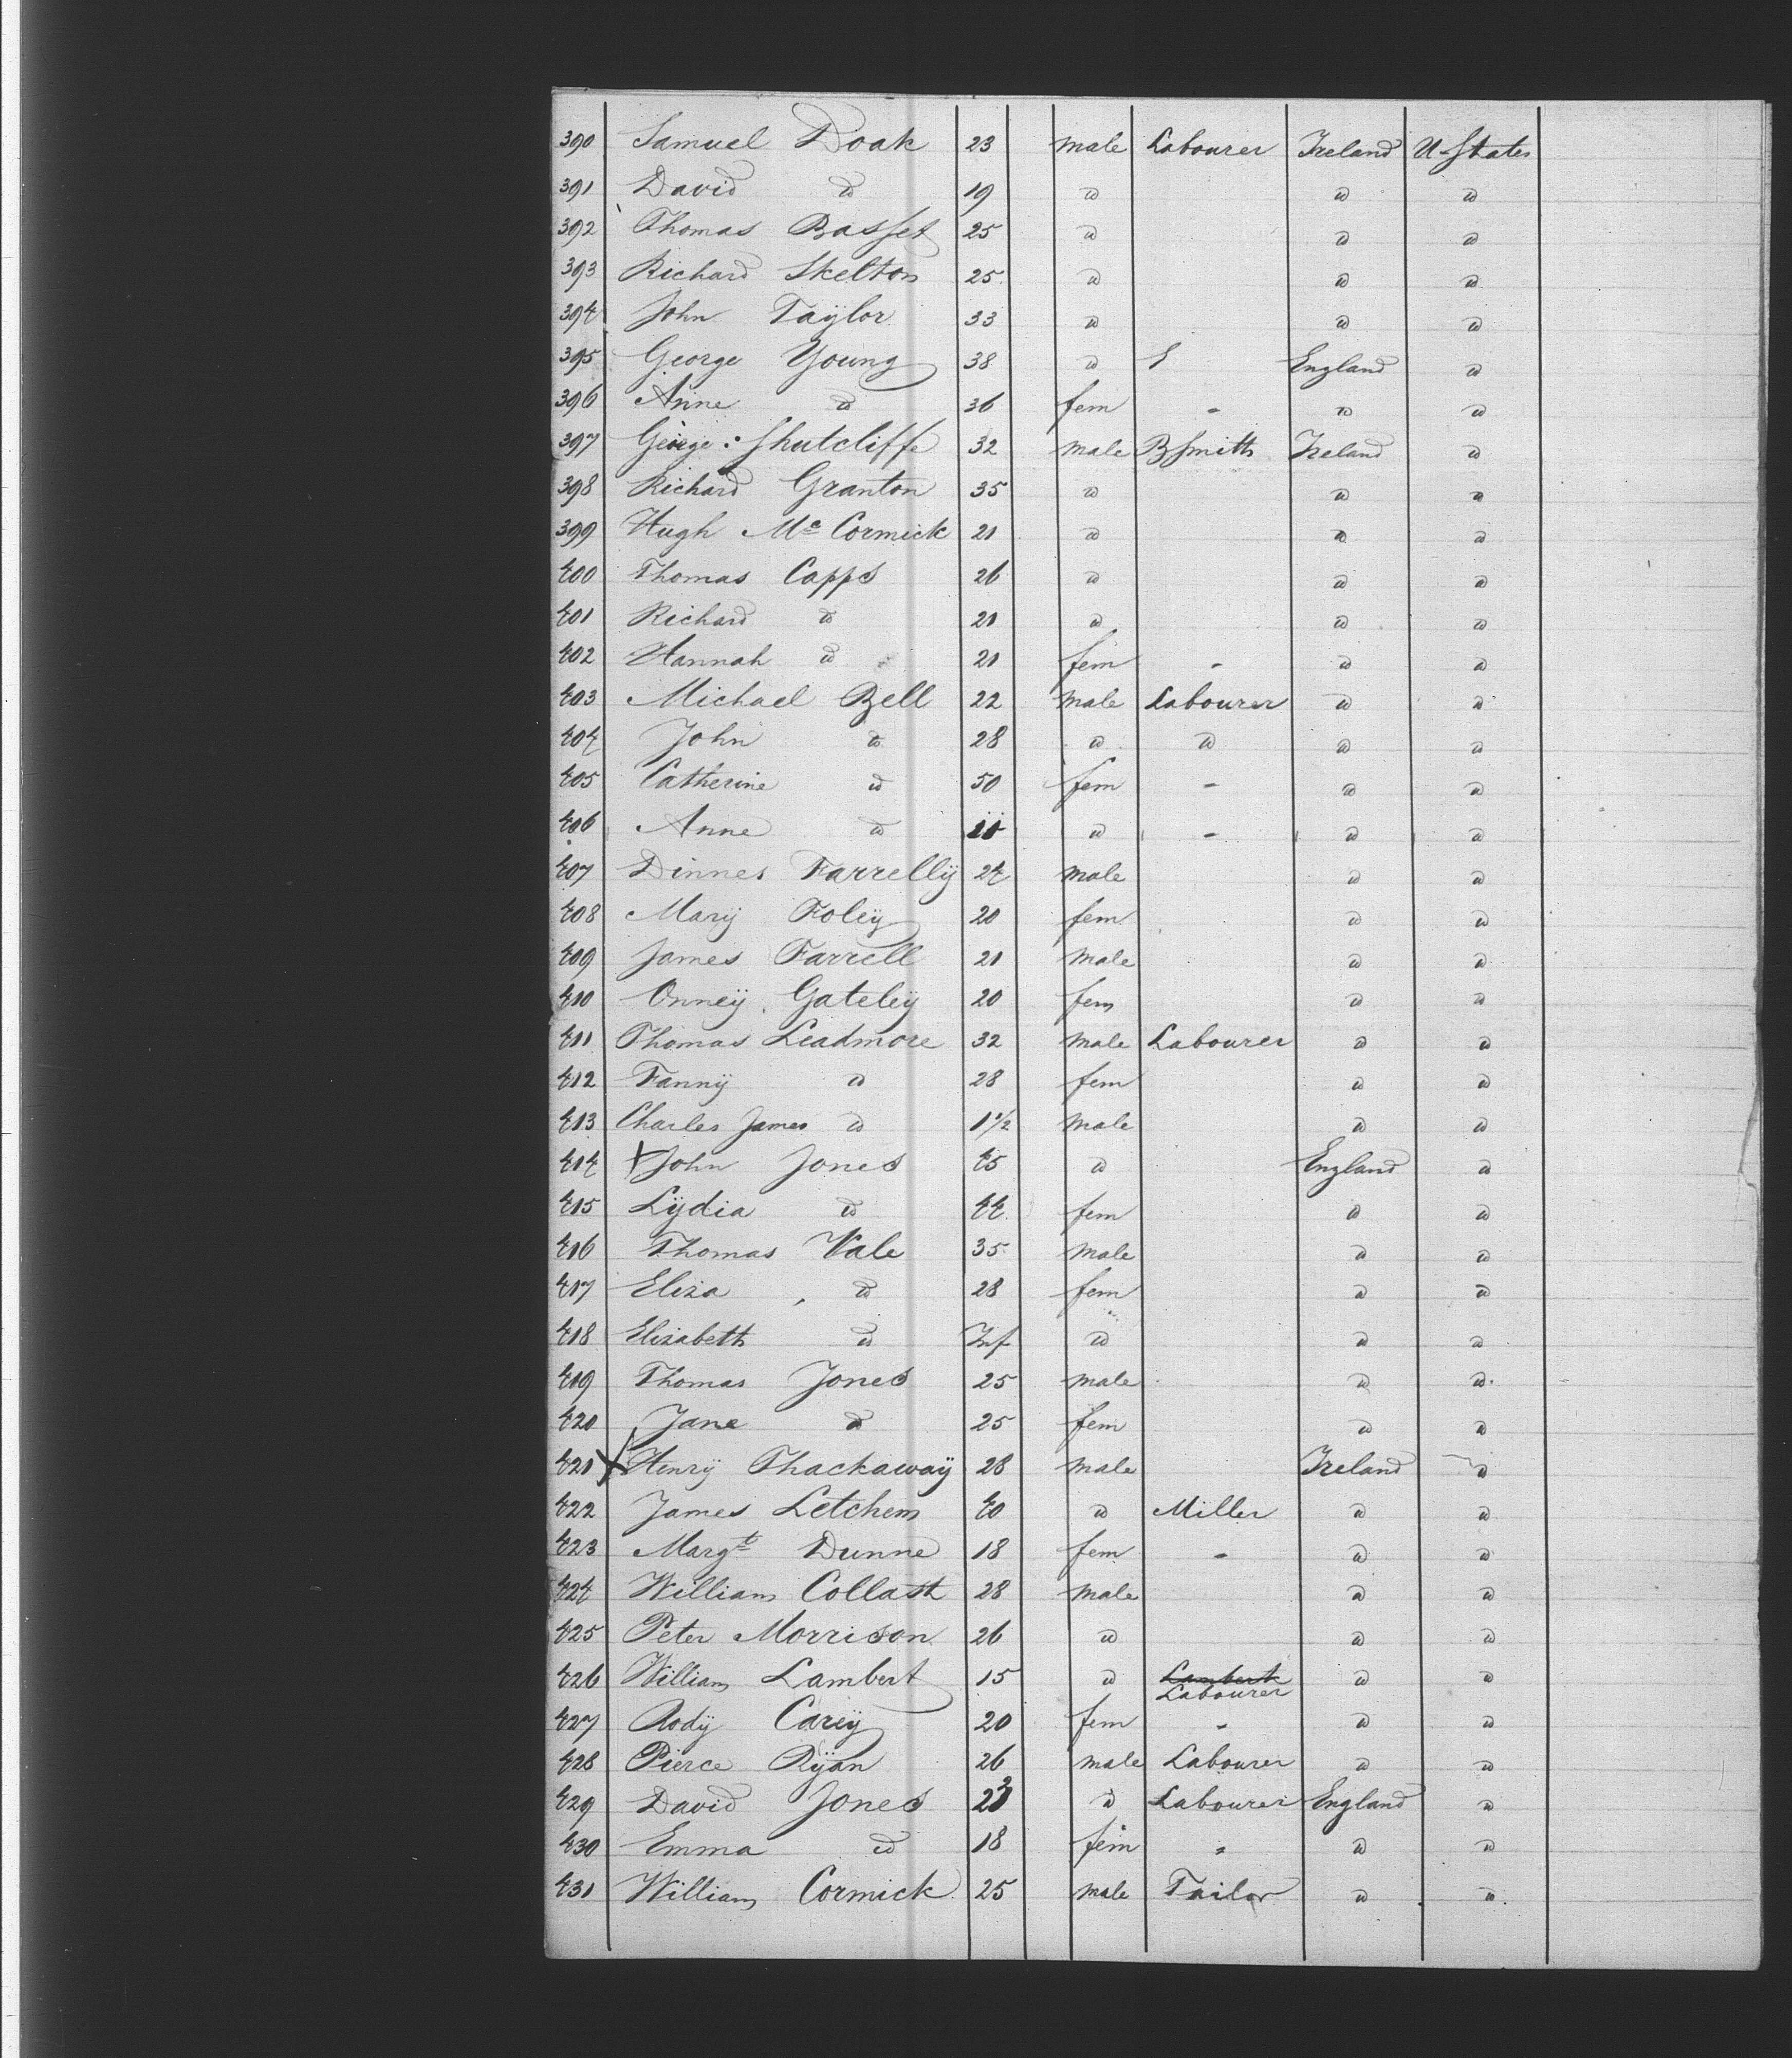 390 Samuel Doak 23 male Labourer Ireland U States
391 David do 19 do do do
392 Thomas Basset 25 do do do
393 Richard Skelton 25 do do do
394 John Taylor 33 do do do
395 George Young 38 do England do
396 Anne do 36 fem - do do
397 George Shutcliffe 32 male BSmith Ireland do
398 Richard Granton 35 do do do
399 Hugh Mc Cormick 21 do do do
400 Thomas Capps 26 do do do
401 Richard do 21 do do do
402 Hannah do 21 fem - do do
403 Michael Bell 22 male Labourer do do
404 John do 28 do do do do
405 Catherine do 50 fem - do do
406 Anne do do - do do
407 Dinnes Farrelly 24 male do do
408 Mary Foley 20 fem do do
409 James Farrell 21 male do do
410 Onney Gateley 20 fem do do
411 Thomas Leadmore 32 male Labourer do do
412 Fanny do 28 fem do do
413 Charles James do 1 1/2 male do do
414 X John Jones 45 do England do
415 Lydia do 44 fem do do
416 Thomas Vale 35 male do do
417 Eliza do 28 fem do do
418 Elizabeth do Inf do do do
419 Thomas Jones 25 male do do
420 Jane do 25 fem do do
421 X Henry Thackaway 28 male Ireland do
422 James Letchem 40 do Miller do do
423 Margt Dunne 18 fem - do do
424 William Collast 28 male do do
425 Peter Morrison 26 do do do
426 William Lambert 15 do Lambert do do
Labourer
427 Rody Carey 20 fem - do do
428 Pierce Ryan 26 male Labourer do do
429 David Jones 23 do Labourer England do
430 Emma do 18 fem - do do
431 William Cormick 25 male Tailor do do